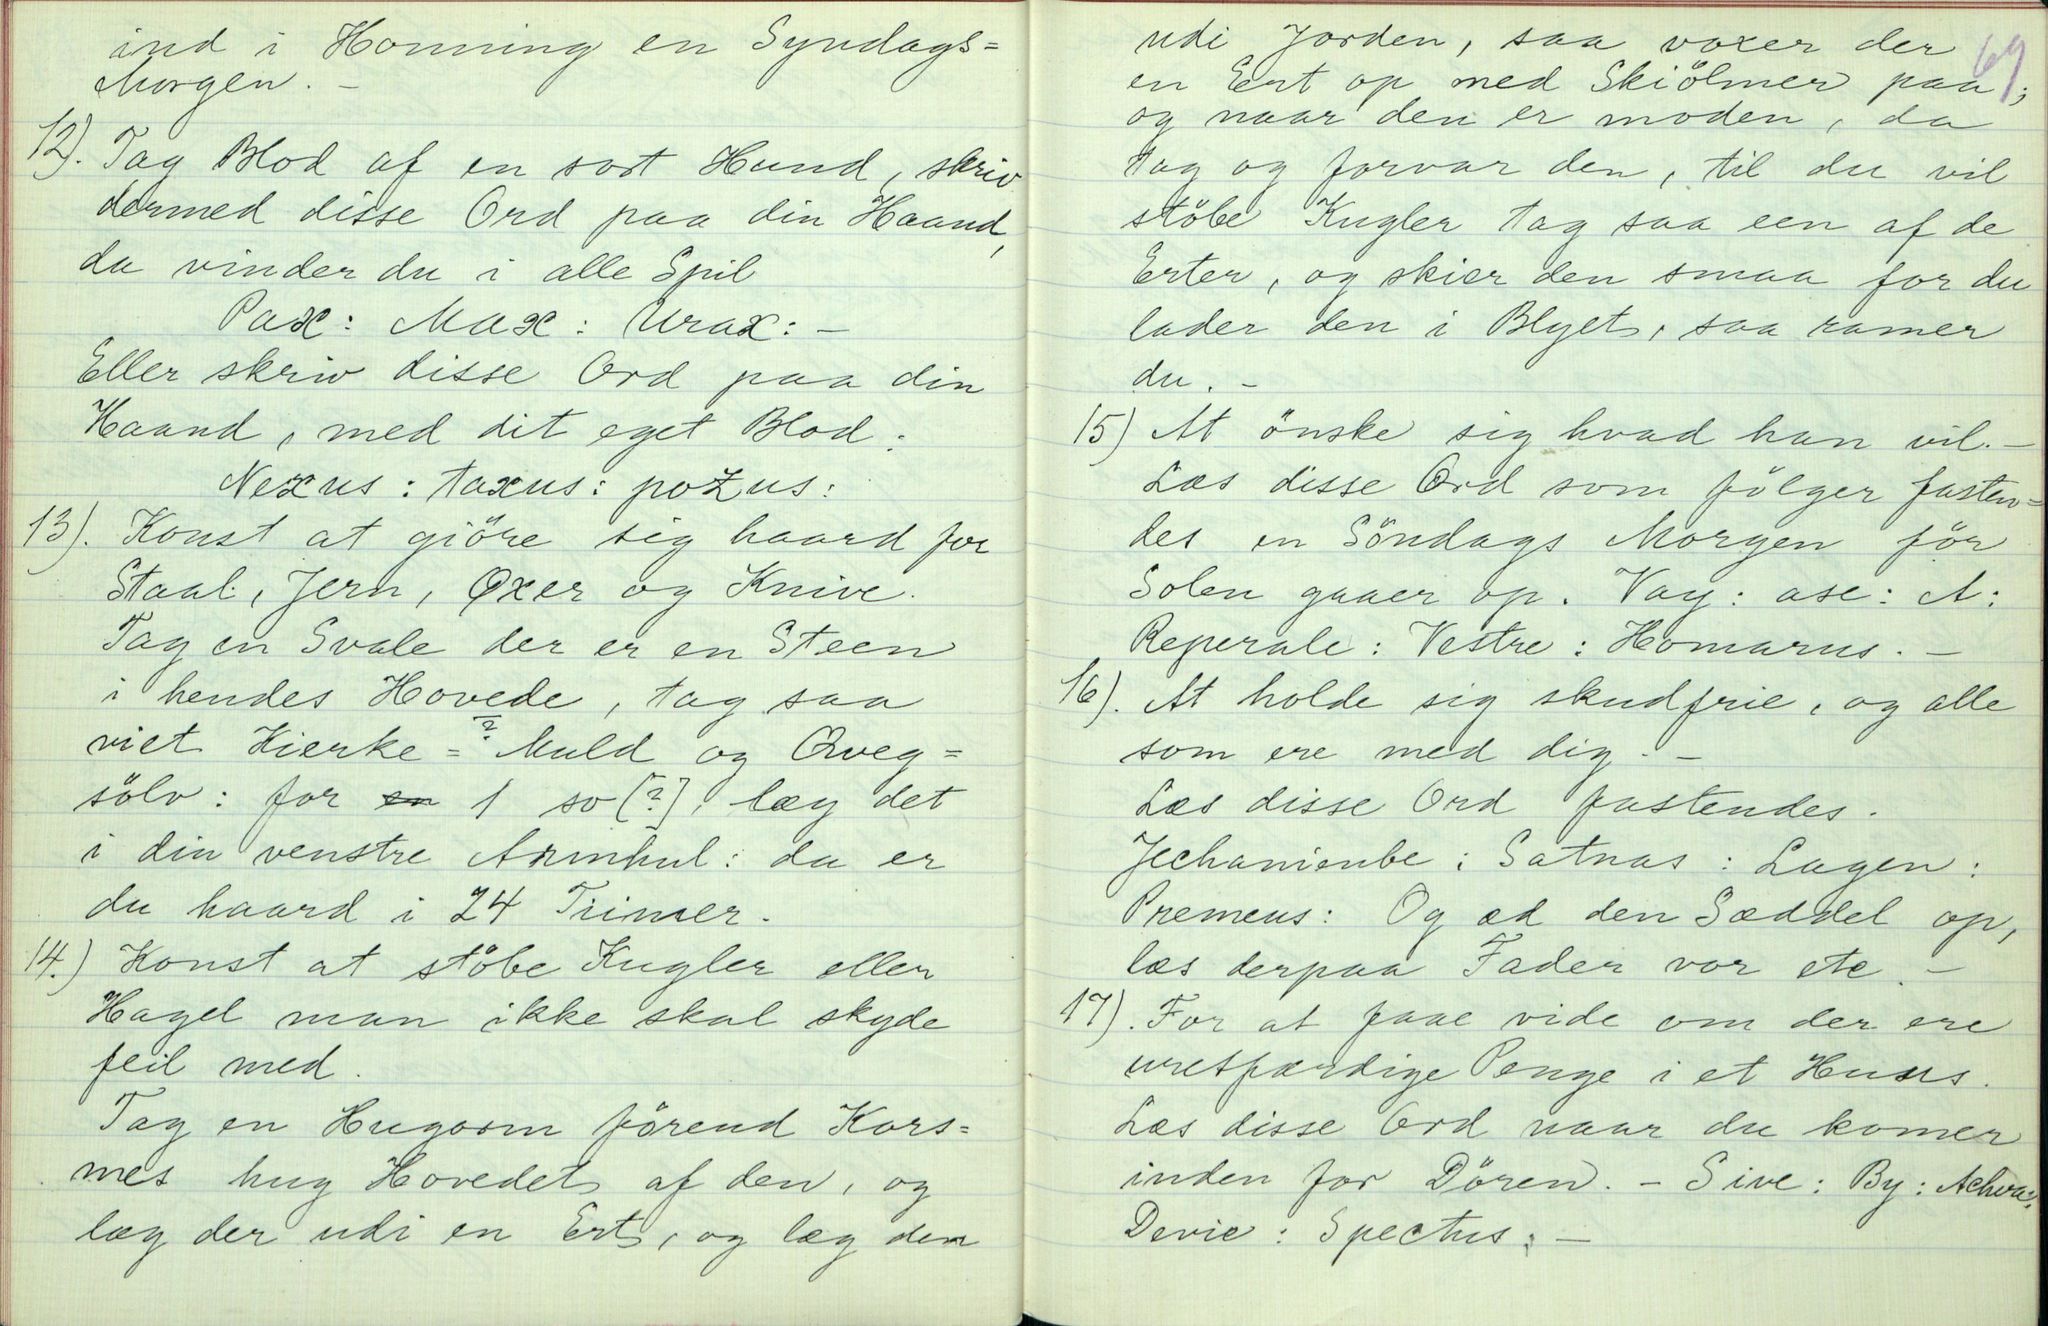 ind i Honning en Syndags=
Morgen. –
12). Tag Blod af en sort Hund, skriv
dermed disse Ord paa din Haand,
da vinder du i alle Spil
Pax: Max: Urax: –
Eller skriv disse Ord paa din
Haand, med dit eget Blod:
Nexus: taxus: pozus:
13). Konst at giöre sig haard for
Staal, Jern, Øxer og Knive.
Tag en Svale der er en Steen
i hendes Hovede, tag saa
viet Kierke=[?] Muld og Qveg=
sölv: for en 1 so [?], læg det
i din venstre Armhul: da er
du haard i 24 Timer.
14.) Konst at stöbe Kugler eller
Hagel man ikke skal skyde
feil med.
Tag en Hugorm förend Kors=
mes hug Hovedet af den, og
læg der udi en Ert, og læg den
69
udi Jorden, saa voxer der
en Ert op med Skiölmer paa;
og naar den er moden, da
tag og forvar den, til du vil
stöbe Kugler tag saa een af de
Erter, og skier den smaa for du
lader den i Blyet, saa ramer
du. –
15) At önske sig hvad han vil. –
Læs disse Ord som fölger fasten=
des en Söndags Morgen för
Solen gaaer op. Vay: ase: A:
Reperale: Vestre: Homarus. –
16). At holde sig skudfrie, og alle
som ere med dig. –
Læs disse Ord fastendes.
Jechanienbe: Satnas: Lagen:
Premeus: Og æd den Sæddel op,
læs derpaa Fader vor etc. –
17). For at faae vide om der ere
uretfærdige Penge i et Huus.
Læs disse Ord naar du komer
inden for Dören. – Sive: By: Achva:
Devie: Spectus: –